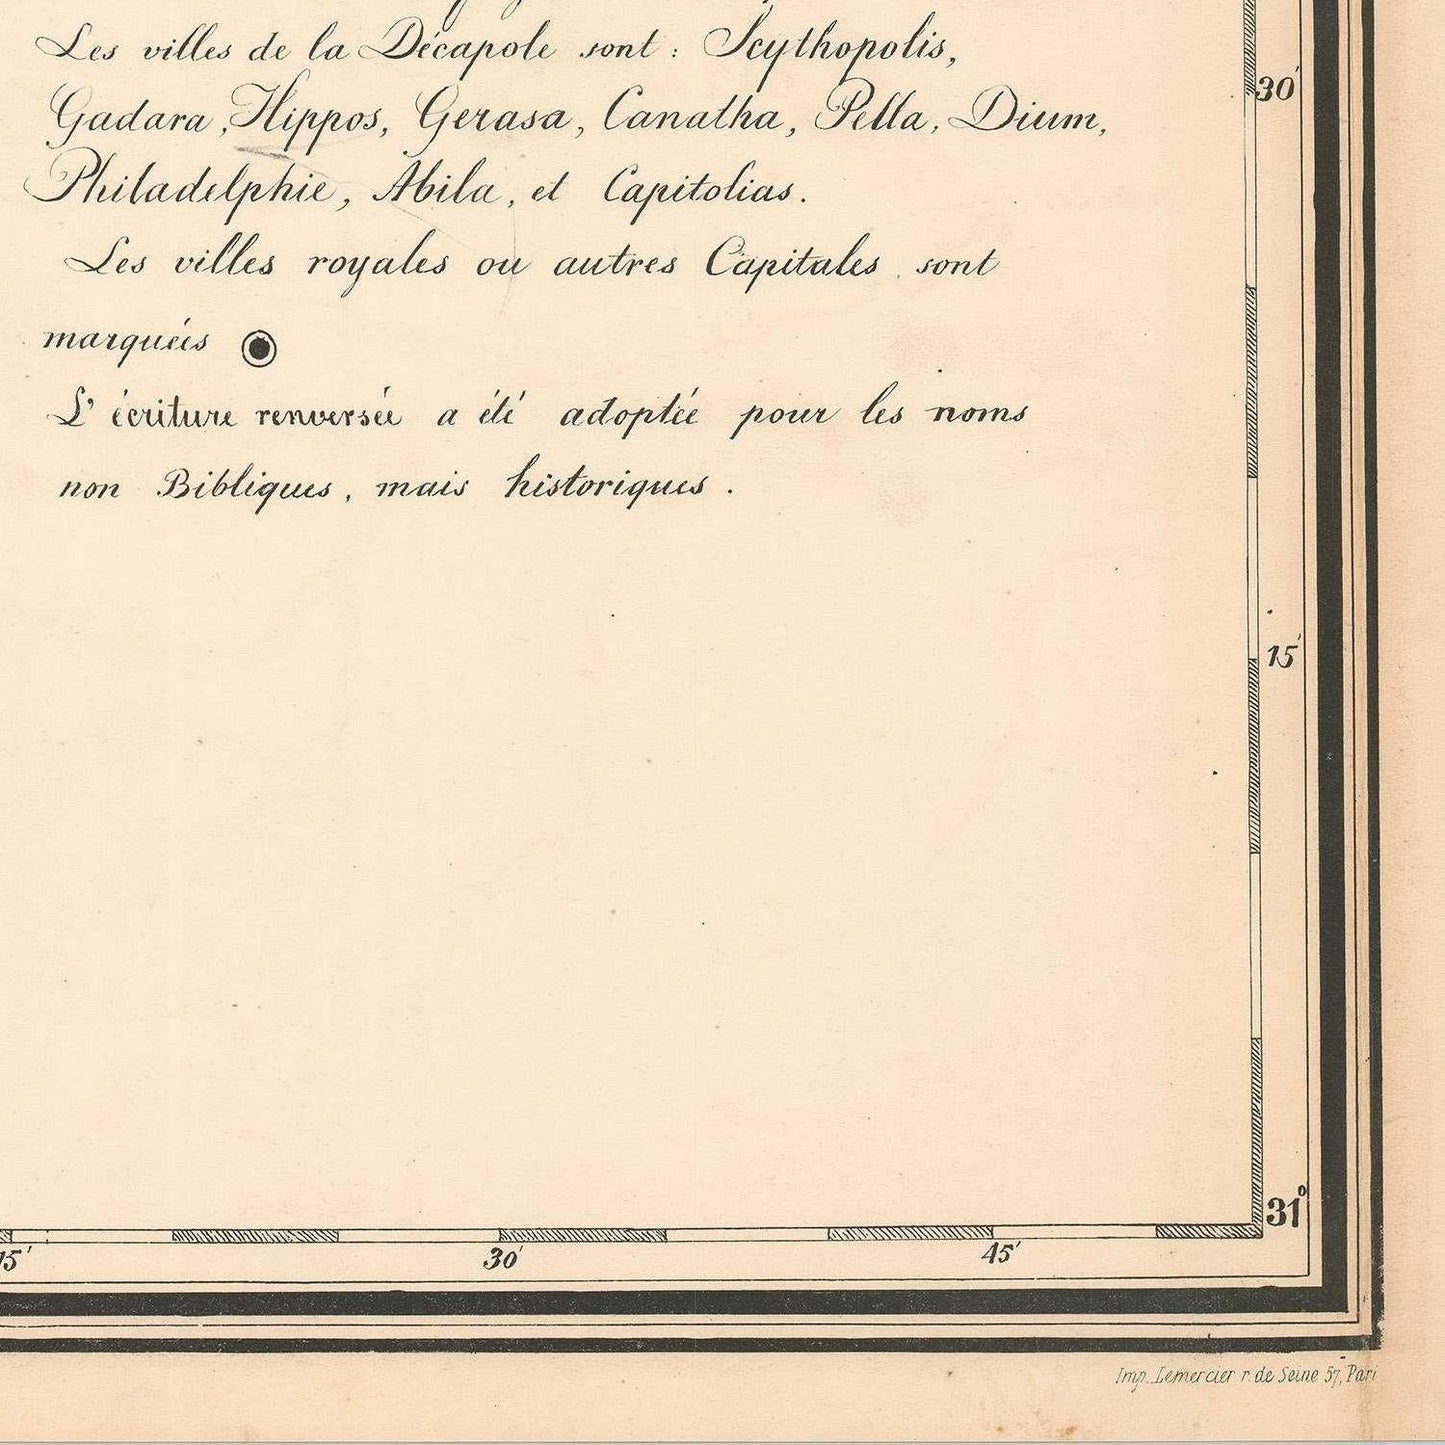 Les villes de la Décapole sont : Scythopolis,
Gadara, Hippos, Gerasa, Canatha, Pella, Dium,
Philadelphie, Abila, et Capitolias.
Les villes royales ou autres Capitales sont
marquées
L'écriture renversée a été adoptée pour les noms
non Bibliques, mais historiques.
30'
15'
31°
15' 30' 45'
Imp. Lemercier r. de Seine 57, Pari